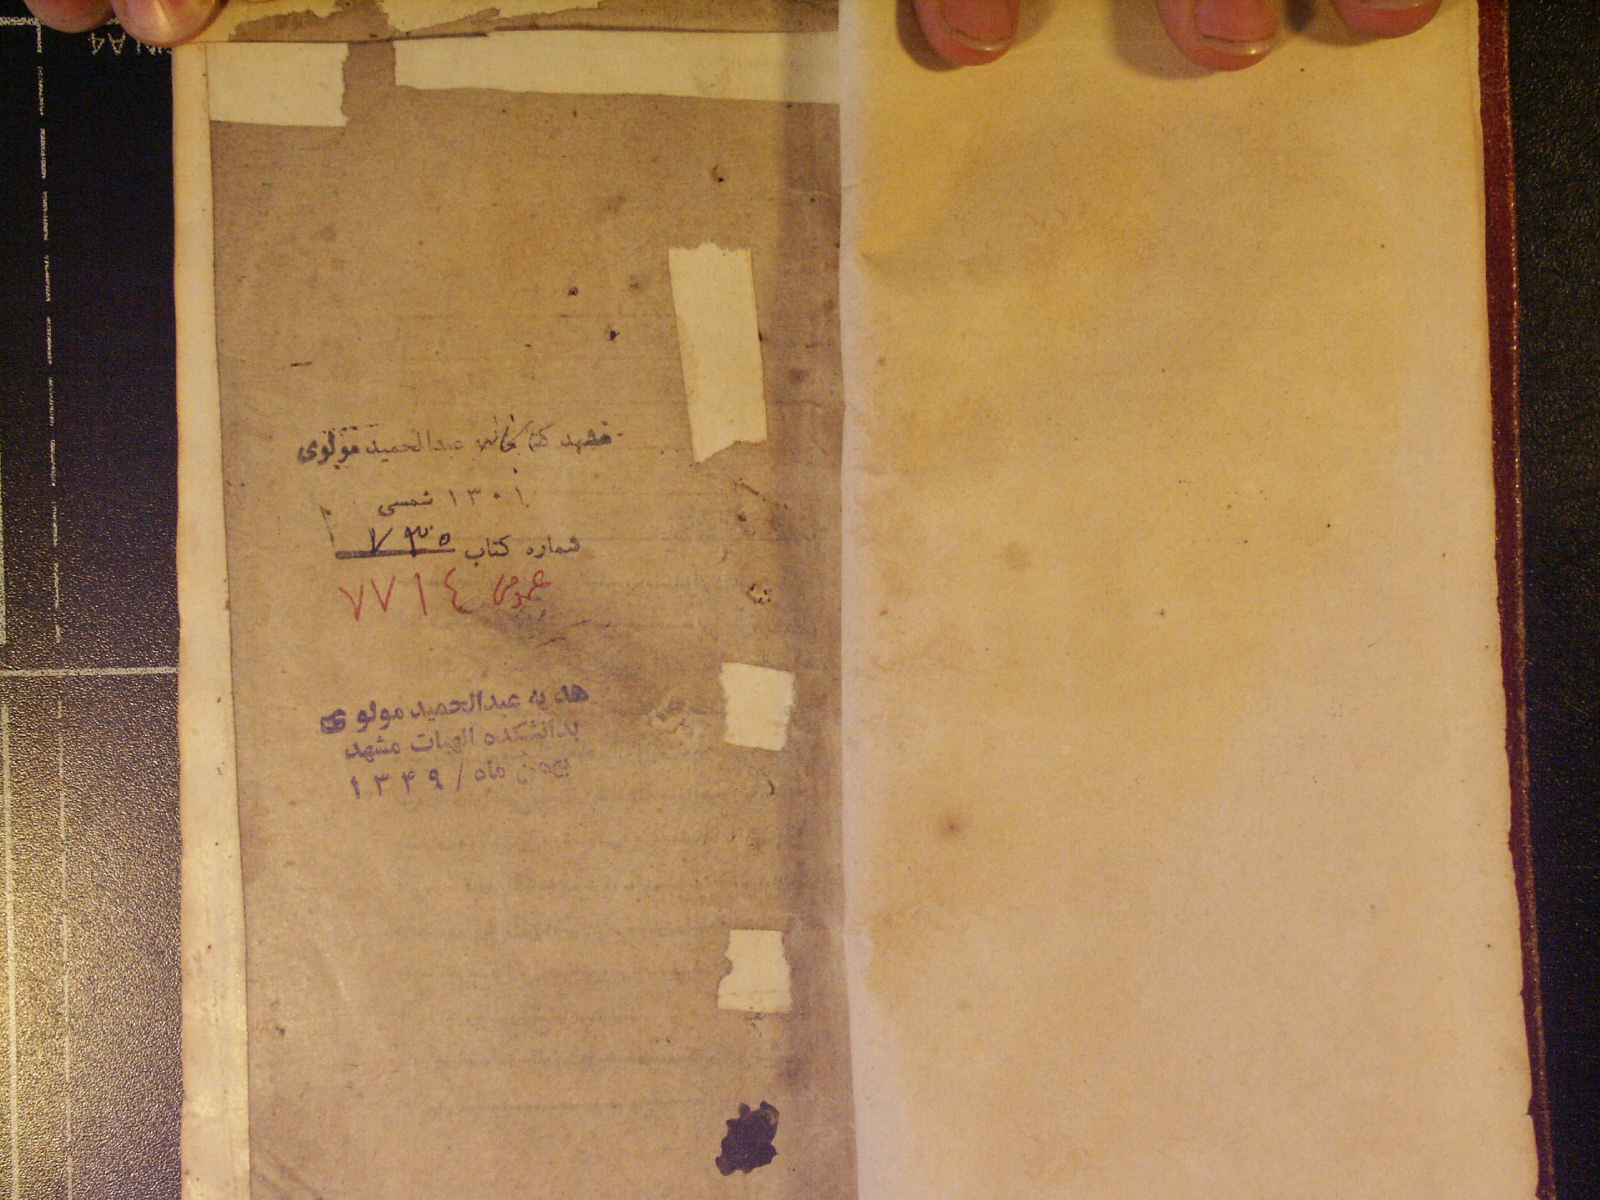 مشهد کتابخانه عبدالحمید مولوی
۱۳۰۱ شمسی
شماره کتاب ۷۳۵
عمومی ۷۷۱٤
هدیه عبدالحمید مولوی
بدانشکده الهیات مشهد
بهمن ماه / ۱۳۴۹